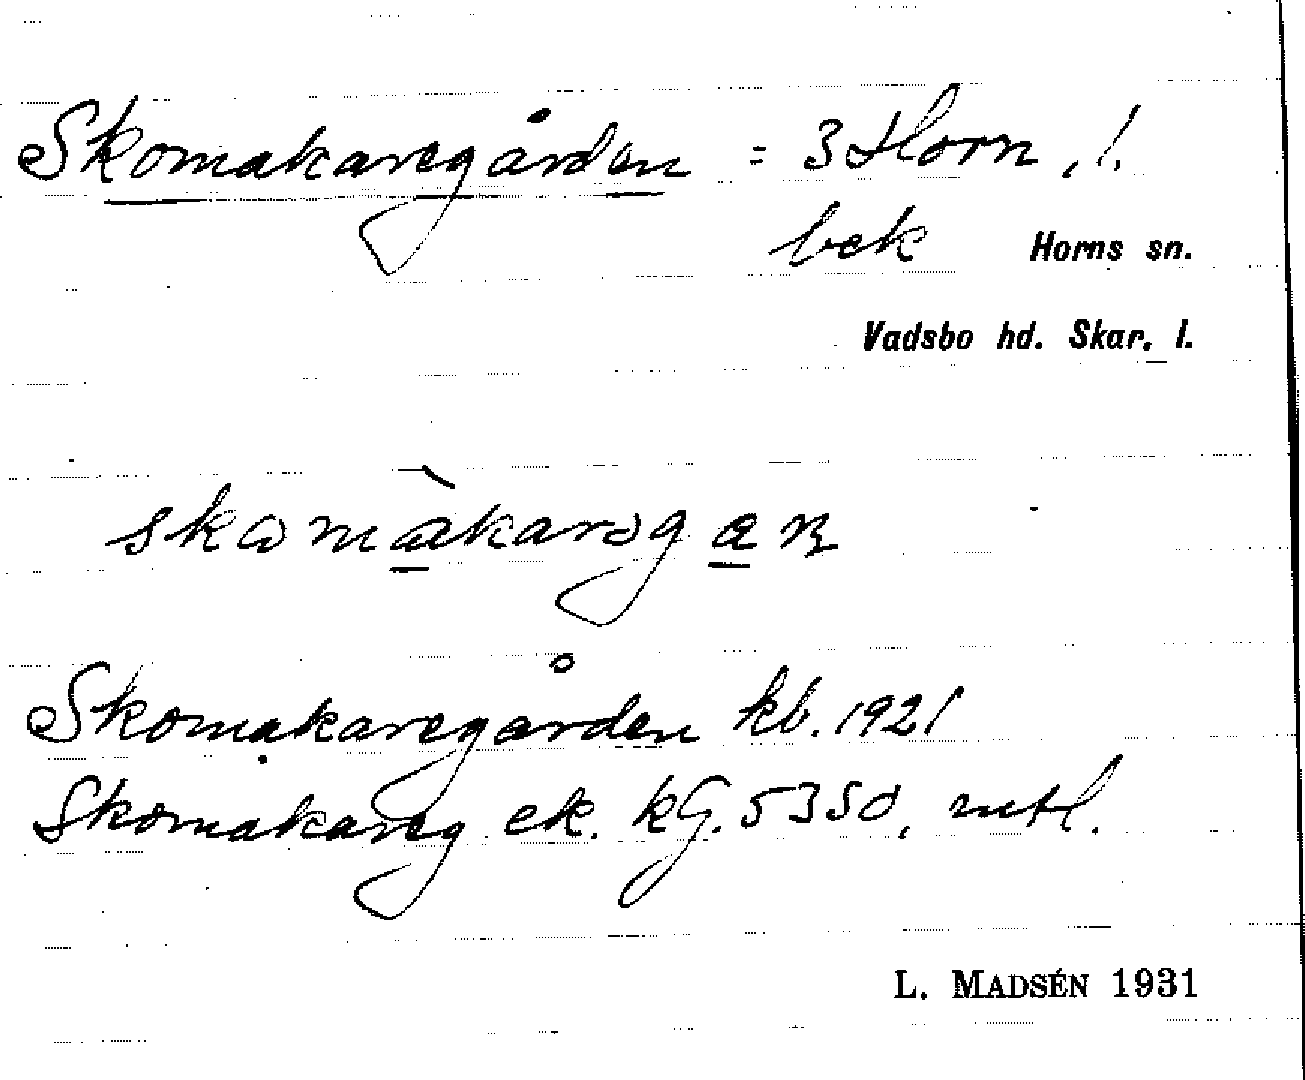 Skomakaregården = 3 Horn, l.
bek Horns sn.
Vadsbo hd. Skar. l.
skomàkarəgan
Skomakaregården kb. 1921
Skomakareg ek. kG. 5350, mtl.
L. MADSÉN 1931